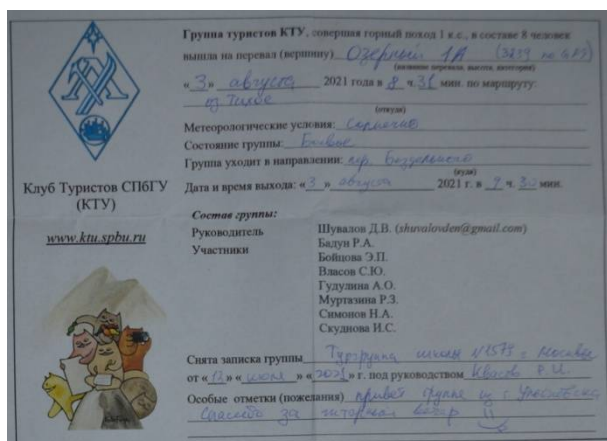 Группа туристов КТУ, совершая горный поход 1 к.с., в составе 8 человек
вышла на перевал (вершину) Озерный 1А (3839 по GPS)
(название перевала, высота, категория)
«3» августа 2021 года в 8 ч. 31 мин. по маршруту:
оз.
(откуда)
Метеорологические условия: Солнечно
Состояние группы: Боевое
Группа уходит в направлении:
(куда)
Дата и время выхода: «3» августа 2021 г. в 9 ч. 30 мин.
Клуб Туристов СПбГУ
(КТУ)
www.ktu.spbu.ru
Состав группы:
Руководитель Шувалов Д.В. (shuvalovden@gmail.com)
Участники Бадун Р.А.
Бойцова Э.П.
Власов С.Ю.
Гудулина А.О.
Муртазина Р.З.
Симонов Н.А.
Скуднова И.С.
Снята записка группы Тургруппа школы г. Москвы
от «12» «июля» «2021» г. под руководством
Особые отметки (пожелания) привет группе из г.
Спасибо за